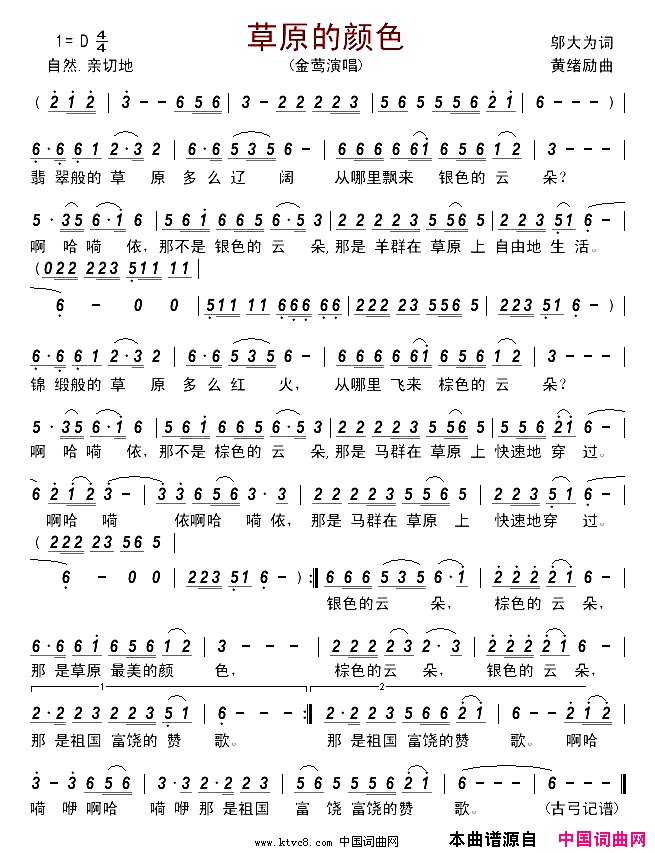 草原的颜色
1= D 4/4
邬大为词
自然.亲切地
(金莺演唱)
黄绪励曲
( 2 1 2 | 3 - - 6 5 6 | 3 - - 2 2 2 2 3 | 5 6 5 5 5 6 2 1 | 6 - - - ) |
6 · 6 6 1 2 · 3 2 | 6 · 6 5 3 5 6 - | 6 6 6 6 6 1 6 5 6 1 2 | 3 - - - |
翡 翠般的 草 原 多 么 辽 阔 从哪里飘来 银色的 云 朵?
5 · 3 5 6 · 1 6 | 5 6 1 6 5 6 6 · 5 3 | 2 2 2 2 3 5 5 6 5 | 2 2 2 3 5 1 6 - |
啊 哈 嗬 依, 那不是 银色的 云 朵, 那是 羊群在 草原 上 自由地 生 活。
( 0 2 2 2 2 2 3 5 1 1 1 1
6 - 0 0 | 5 1 1 1 1 6 6 6 6 6 | 2 2 2 2 3 3 5 5 6 5 | 2 2 2 3 5 1 6 - ) |
6 · 6 6 1 2 · 3 2 | 6 · 6 5 3 5 6 - | 6 6 6 6 6 1 6 5 6 1 2 | 3 - - - |
锦 缎般的 草 原 多 么 红 火, 从哪里 飞来 棕色的 云 朵?
5 · 3 5 6 · 1 6 | 5 6 1 6 5 6 6 · 5 3 | 2 2 2 2 3 5 5 6 5 | 5 5 5 6 2 1 6 - |
啊 哈 嗬 依, 那不是 棕色的 云 朵, 那是 马群在 草原 上 快速地 穿 过。
6 2 1 2 3 - | 3 3 6 5 6 3 · 3 | 2 2 2 2 3 5 5 6 5 | 2 2 2 3 5 1 6 - |
啊哈 嗬 依啊哈 嗬 依, 那 是 马群在 草原 上 快速地 穿 过。
( 2 2 2 2 2 3 5 6 5
6 - 0 0 | 2 2 2 3 5 1 6 - ) :‖ 6 6 6 6 5 3 5 6 · 1 | 2 2 2 2 2 1 6 - |
银色的 云 朵, 棕色的 云 朵,
6 · 6 6 1 6 5 6 1 2 | 3 - - - | 2 2 2 2 3 2 1 2 · 3 | 2 2 2 2 2 1 6 - |
那 是草原 最美的 颜 色, 棕色的 云 朵, 银色的 云 朵,
1 2
2 · 2 2 3 2 2 3 5 1 | 6 - - - :‖ 2 · 2 2 3 5 5 6 2 1 | 6 - - 2 1 2 |
那 是祖国 富饶的 赞 歌。 那 是祖国 富饶的 赞 歌。 啊哈
3 - 3 2 1 2 | 3 - 3 2 · 2 2 3 | 5 6 5 5 5 6 2 1 | 6 - - - | 6 - - - ‖
嗬 咿 啊哈 嗬 咿 那 是祖国 富 饶 富饶的 赞 歌。 (古弓记谱)
www.ktvc8.com 中国词曲网 本曲谱源自 中国词曲网